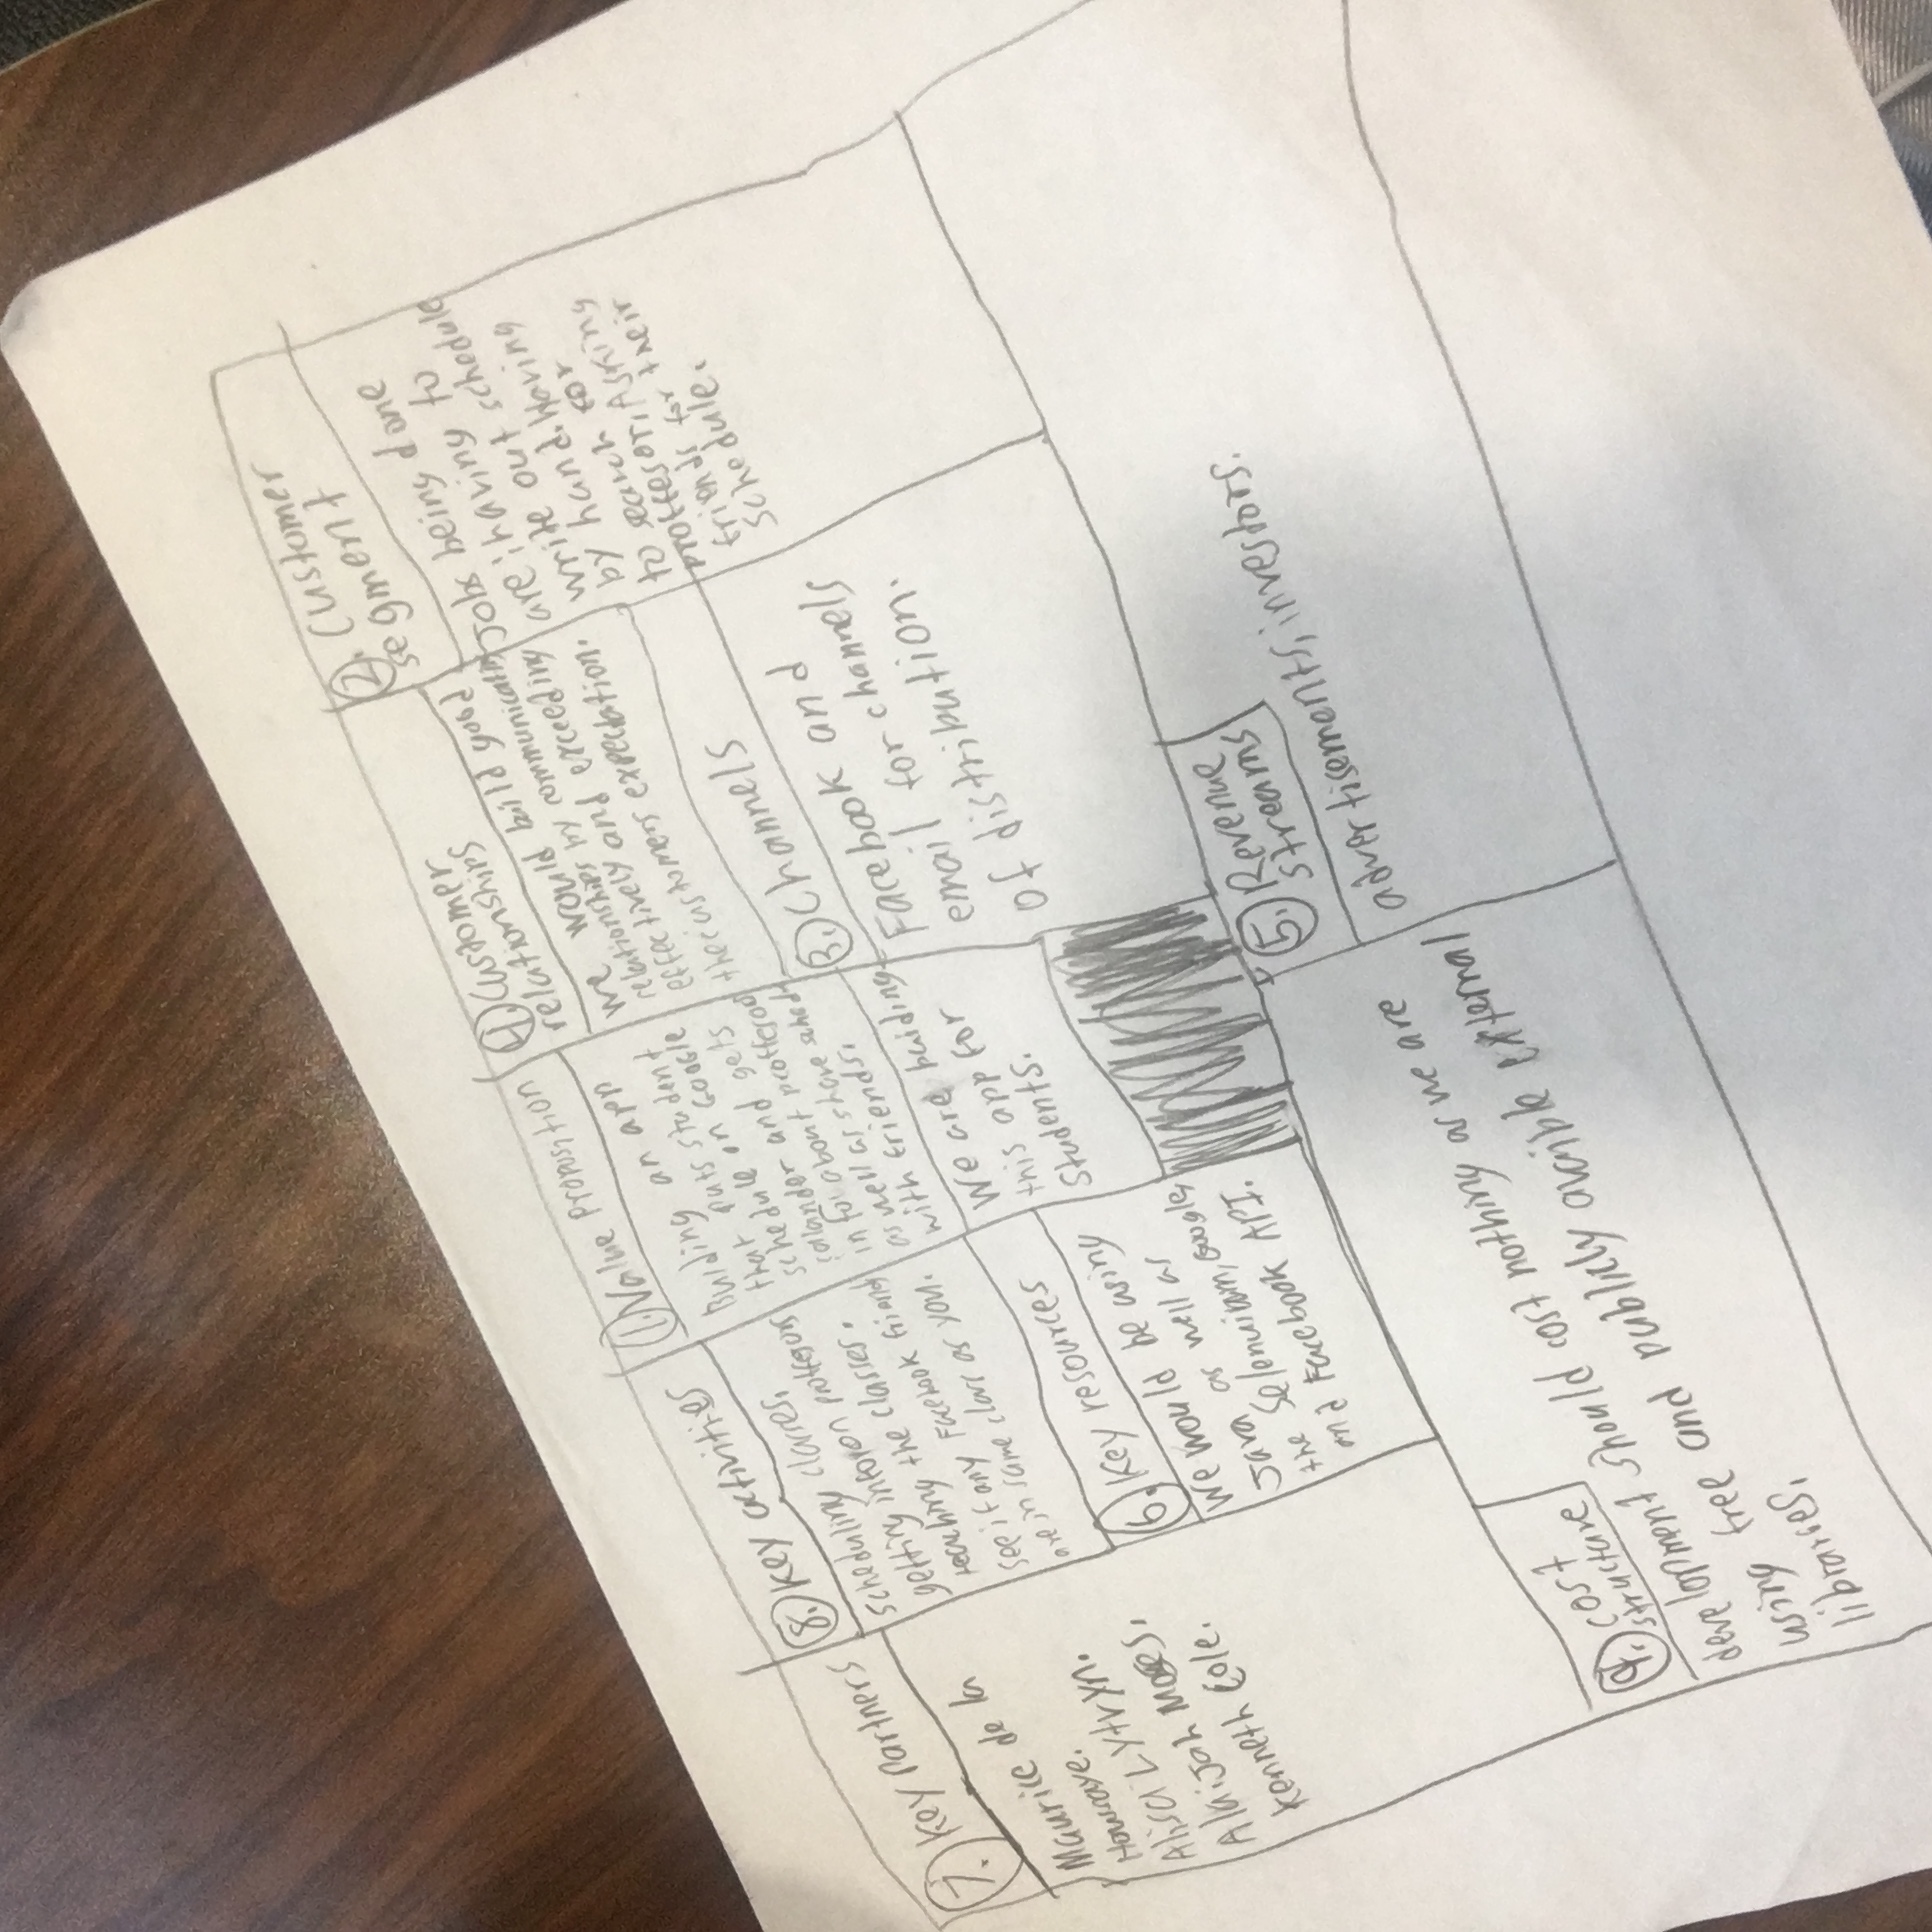 7. Key Partners
Maurice de la
Howaye.
Alisa Lytvyn.
Alaijah Moses.
Kenneth Cole.
8. Key activities
scheduling classes,
getting info on proffesors
teaching the classes.
see if any Facebook friends
are in same class as you.
6. Key resources
We would be using
Java as well as
the Selenuiam, Google,
and Facebook API.
1. Value proposition
Building an app
that puts student
schedule on Google
calander and gets
info about proffesor
as well as share sched
with friends.
We are building
this app for
students.
4. Customer
relationships
We would build good
relationships by communicating
effectively and exceeding
the customers expectation.
3. Channels
Facebook and
email for channels
of distribution.
2. Customer
segment
Jobs being done
are: having to
write out schedule
by hand. Having
to search for
proffesor, Asking
friends for their
schedule.
9. Cost
structure
development should cost nothing as we are
using free and publicly avaible external
libraries.
5. Revenue
streams
advertisements, investors.